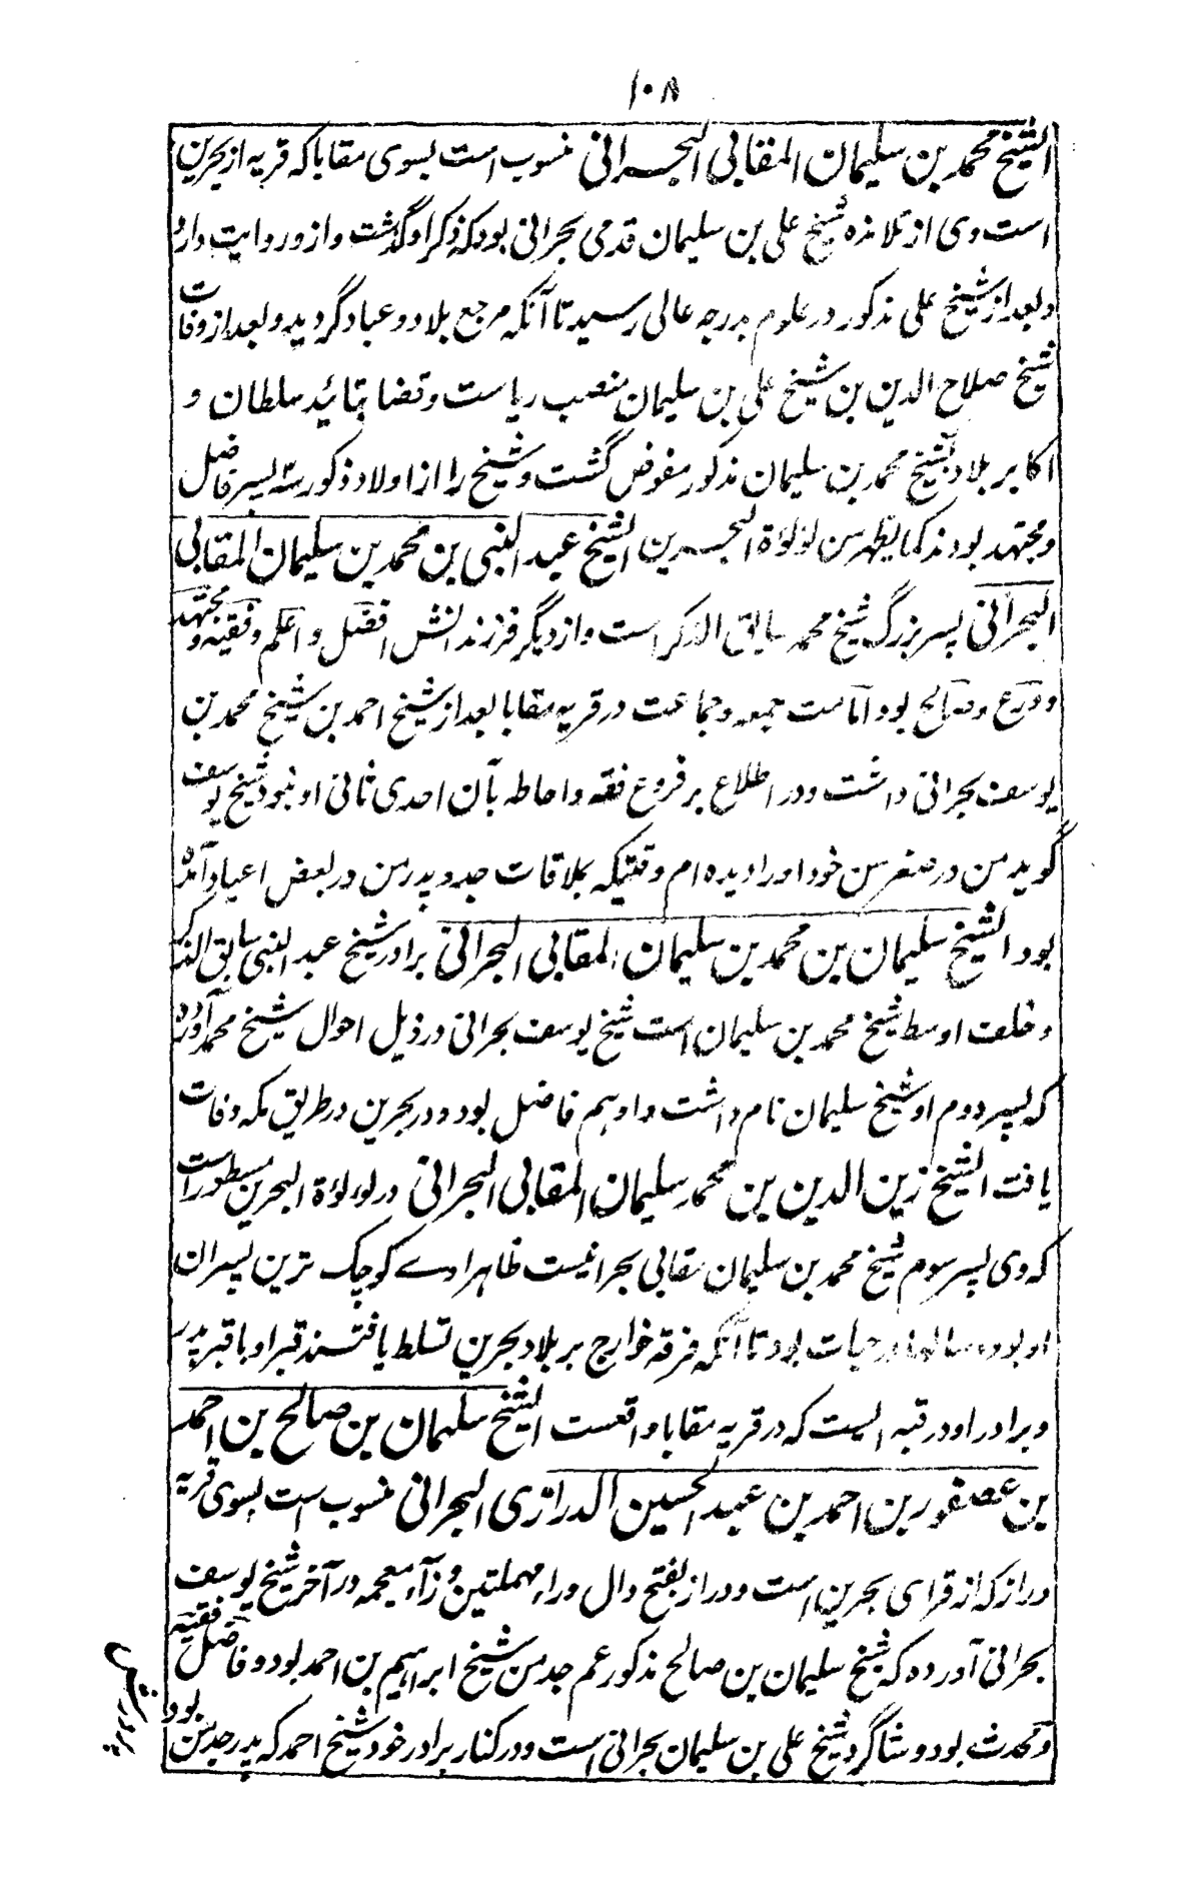 ۱۰۸
الشیخ محمد بن سلیمان المقابی البحرانی منسوب است بسوی مقابا که قریه از بحرین
است وی از تلامذه شیخ علی بن سلیمان قدمی بحرانی بود که ذکر او گذشت و از و روایت دارد
و بعد از شیخ علی مذکور در علوم بدرجه عالی رسید تا آنکه مرجع بلاد و عباد گردید و بعد از وفات
شیخ صلاح الدین بن شیخ علی بن سلیمان منصب ریاست و قضا بتائید سلطان و
اکابر بلاد بشیخ محمد بن سلیمان مذکور مفوض گشت و شیخ را از اولاد ذکور سه پسر فاضل
و مجتهد بودند کما یظهر من لؤلؤة البحرین الشیخ عبد النبی بن محمد بن سلیمان المقابی
البحرانی پسر بزرگ شیخ محمد سابق الذکر است و از دیگر فرزندانش افضل و اعلم و فقیه و مجتهد
و ورع و صالح بود امامت جمعه و جماعت در قریه مقابا بعد از شیخ احمد بن شیخ محمد بن
یوسف بحرانی داشت و در اطلاع بر فروع فقه و احاطه بآن احدی ثانی او نبود شیخ یوسف
گوید من در صغر سن خود او را دیده ام وقتیکه بملاقات جد و پدر من در بعض اعیاد آمده
بود الشیخ سلیمان بن محمد بن سلیمان المقابی البحرانی برادر شیخ عبد النبی سابق الذکر
و خلف اوسط شیخ محمد بن سلیمان است شیخ یوسف بحرانی در ذیل احوال شیخ محمد آورده
که پسر دوم او شیخ سلیمان نام داشت و او هم فاضل بود و در بحرین در طریق مکه وفات
یافت الشیخ زین الدین بن محمد سلیمان المقابی البحرانی در لؤلؤة البحرین مسطور است
که وی پسر سوم شیخ محمد بن سلیمان مقابی بحرانیست ظاهرا وے کوچک ترین پسران
او بود و سالها در حیات بود تا آنکه فرقه خوارج بر بلاد بحرین تسلط یافتند قبر او با قبر پدر
و برادر او در قبه ایست که در قریه مقابا واقعست الشیخ سلیمان بن صالح بن احمد
بن عصفور بن احمد بن عبد الحسین الدرازی البحرانی منسوب است بسوی قریه
دراز که از قرای بحرین است و دراز بفتح دال و راء مهملتین و زآء معجمه در آخر شیخ یوسف
بحرانی آورده که شیخ سلیمان بن صالح مذکور عم جد من شیخ ابراهیم بن احمد بود و فاضل فقیه
و محدث بود و شاگرد شیخ علی بن سلیمان بحرانی است و در کنار برادر خود شیخ احمد که پدر جد من بود